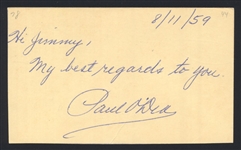 8/11/59
Hi Jimmy,
My best regards to you.
Paul O'Dea